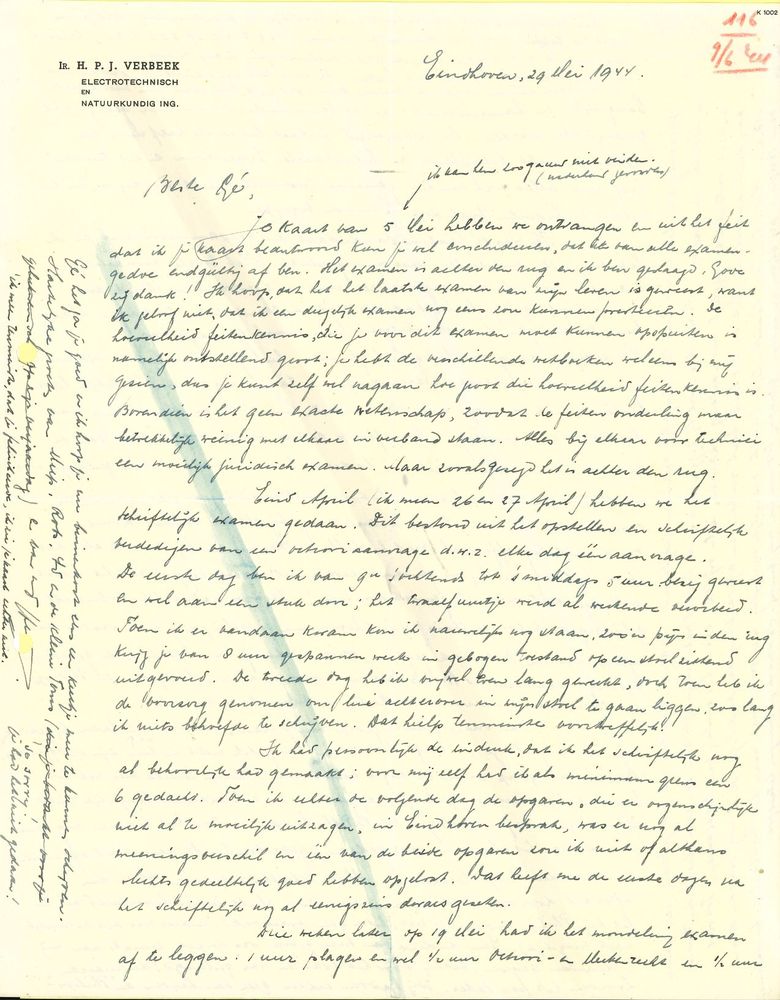 K 1002
116
9/6
IR. H. P. J. VERBEEK
ELECTROTECHNISCH
EN
NATUURKUNDIG ING.
Eindhoven, 29 Mei 1944.
ik kan hem zoo gauw niet vinden.
Beste Gé,
Je kaart van 5 Mei hebben we ontvangen en uit het feit
dat ik je kaart beantwoord kun je wel concludeeren, dat ik van alle examen-
gedoe endgültig af ben. Het examen is achter den rug en ik ben geslaagd, Gove
zij dank! Ik hoop, dat het het laatste examen van mijn leven is geweest, want
ik geloof niet, dat ik een degelijk examen nog eens zou kunnen presteeren. De
hoeveelheid feitenkennis, die je voor dit examen moet kunnen opspuiten is
namelijk ontstellend groot; je hebt de verschillende wetboeken wel eens bij mij
gezien, dus je kunt zelf wel nagaan hoe groot die hoeveelheid feitenkennis is.
Bovendien is het geen exacte wetenschap, zoodat de feiten onderling maar
betrekkelijk weinig met elkaar in verband staan. Alles bij elkaar voor technici
een moeilijk juridisch examen. Maar zooals gezegd het is achter den rug.
Eind April (ik meen 26 en 27 April) hebben we het
schriftelijk examen gedaan. Dit bestond uit het opstellen en schriftelijk
verdedigen van een octrooiaanvrage d.w.z. elke dag één aanvrage.
De eerste dag ben ik van 9 u 's ochtends tot 's middags 5 uur bezig geweest
en wel aan een stuk door; het twaalfuurtje werd al werkende verorberd.
Toen ik er vandaan kwam kon ik nauwelijks nog staan, zoo'n pijn in den rug
krijg je van 8 uur gespannen werk in gebogen toestand op een stoel zittend
uitgevoerd. De tweede dag heb ik vrijwel even lang gewerkt, doch toen heb ik
de voorzorg genomen om lui achterover in mijn stoel te gaan liggen, zoo lang
ik niets behoefde te schrijven. Dat hielp tenminste voortreffelijk.
Ik had persoonlijk de indruk, dat ik het schriftelijk nog
al behoorlijk had gemaakt; voor mij zelf had ik als minimum geens een
6 gedacht. Toen ik echter de volgende dag de opgaven, die er oogenschijnlijk
niet al te moeilijk uitzagen, in Eindhoven besprak, was er nog al
meeningsverschil en één van de beide opgaven zou ik niet of althans
slechts gedeeltelijk goed hebben opgelost. Dat heeft me de eerste dagen na
het schriftelijk nog al eenigszins dwars gezeten.
Drie weken later op 19 Mei had ik het mondeling examen
af te leggen. 1 uur plagen en wel ½ uur Octrooi- en Merkenrecht en ½ uur
Gé het ga je goed en ik hoop je binnenkort eens een keertje meer te kunnen schrijven.
Hartelijke groeten van Miep, Rob, en de kleine Tom
ik meen tenminste, dat je
Je sorry!